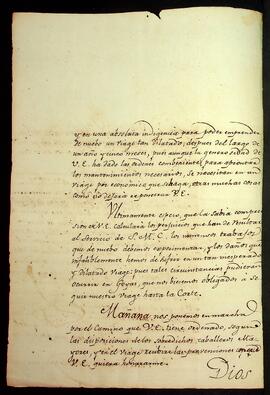 y en una absoluta indigencia para poder emprender
de nuebo un viage tan dilatado; despues del largo de
un año y cinco meses, pues aunque la generosidad de
V.E. ha dado las ordenes combenientes para aprontar
los mantenimientos necesarios, se necesitan en un
viage por economico que se haga, otras muchas cosas
como no dejará exponer a V.E.
Ultimamente espero, que la sabia compren
sion de V.E. calculará los perjuicios que han de resultar
al servicio de S.M.C. los immensos trabajos
que de nuebo debemos experimentar, y los daños que
infaliblemente hemos de sufrir en tan inesperado
y dilatado viage; pues tales circunstancias pudieran
ocurrir en Goyas, que nos bieramos obligados à se
guir nuestro viage hasta la Corte.
Mañana nos ponemos en marcha
por el Camino que V.E. tiene ordenado, segun
las disposiciones de los sobredichos caballeros Ma
yores, y en el viage recibiré las prevenciones con que
V.E. quiera honrarme.
Dios